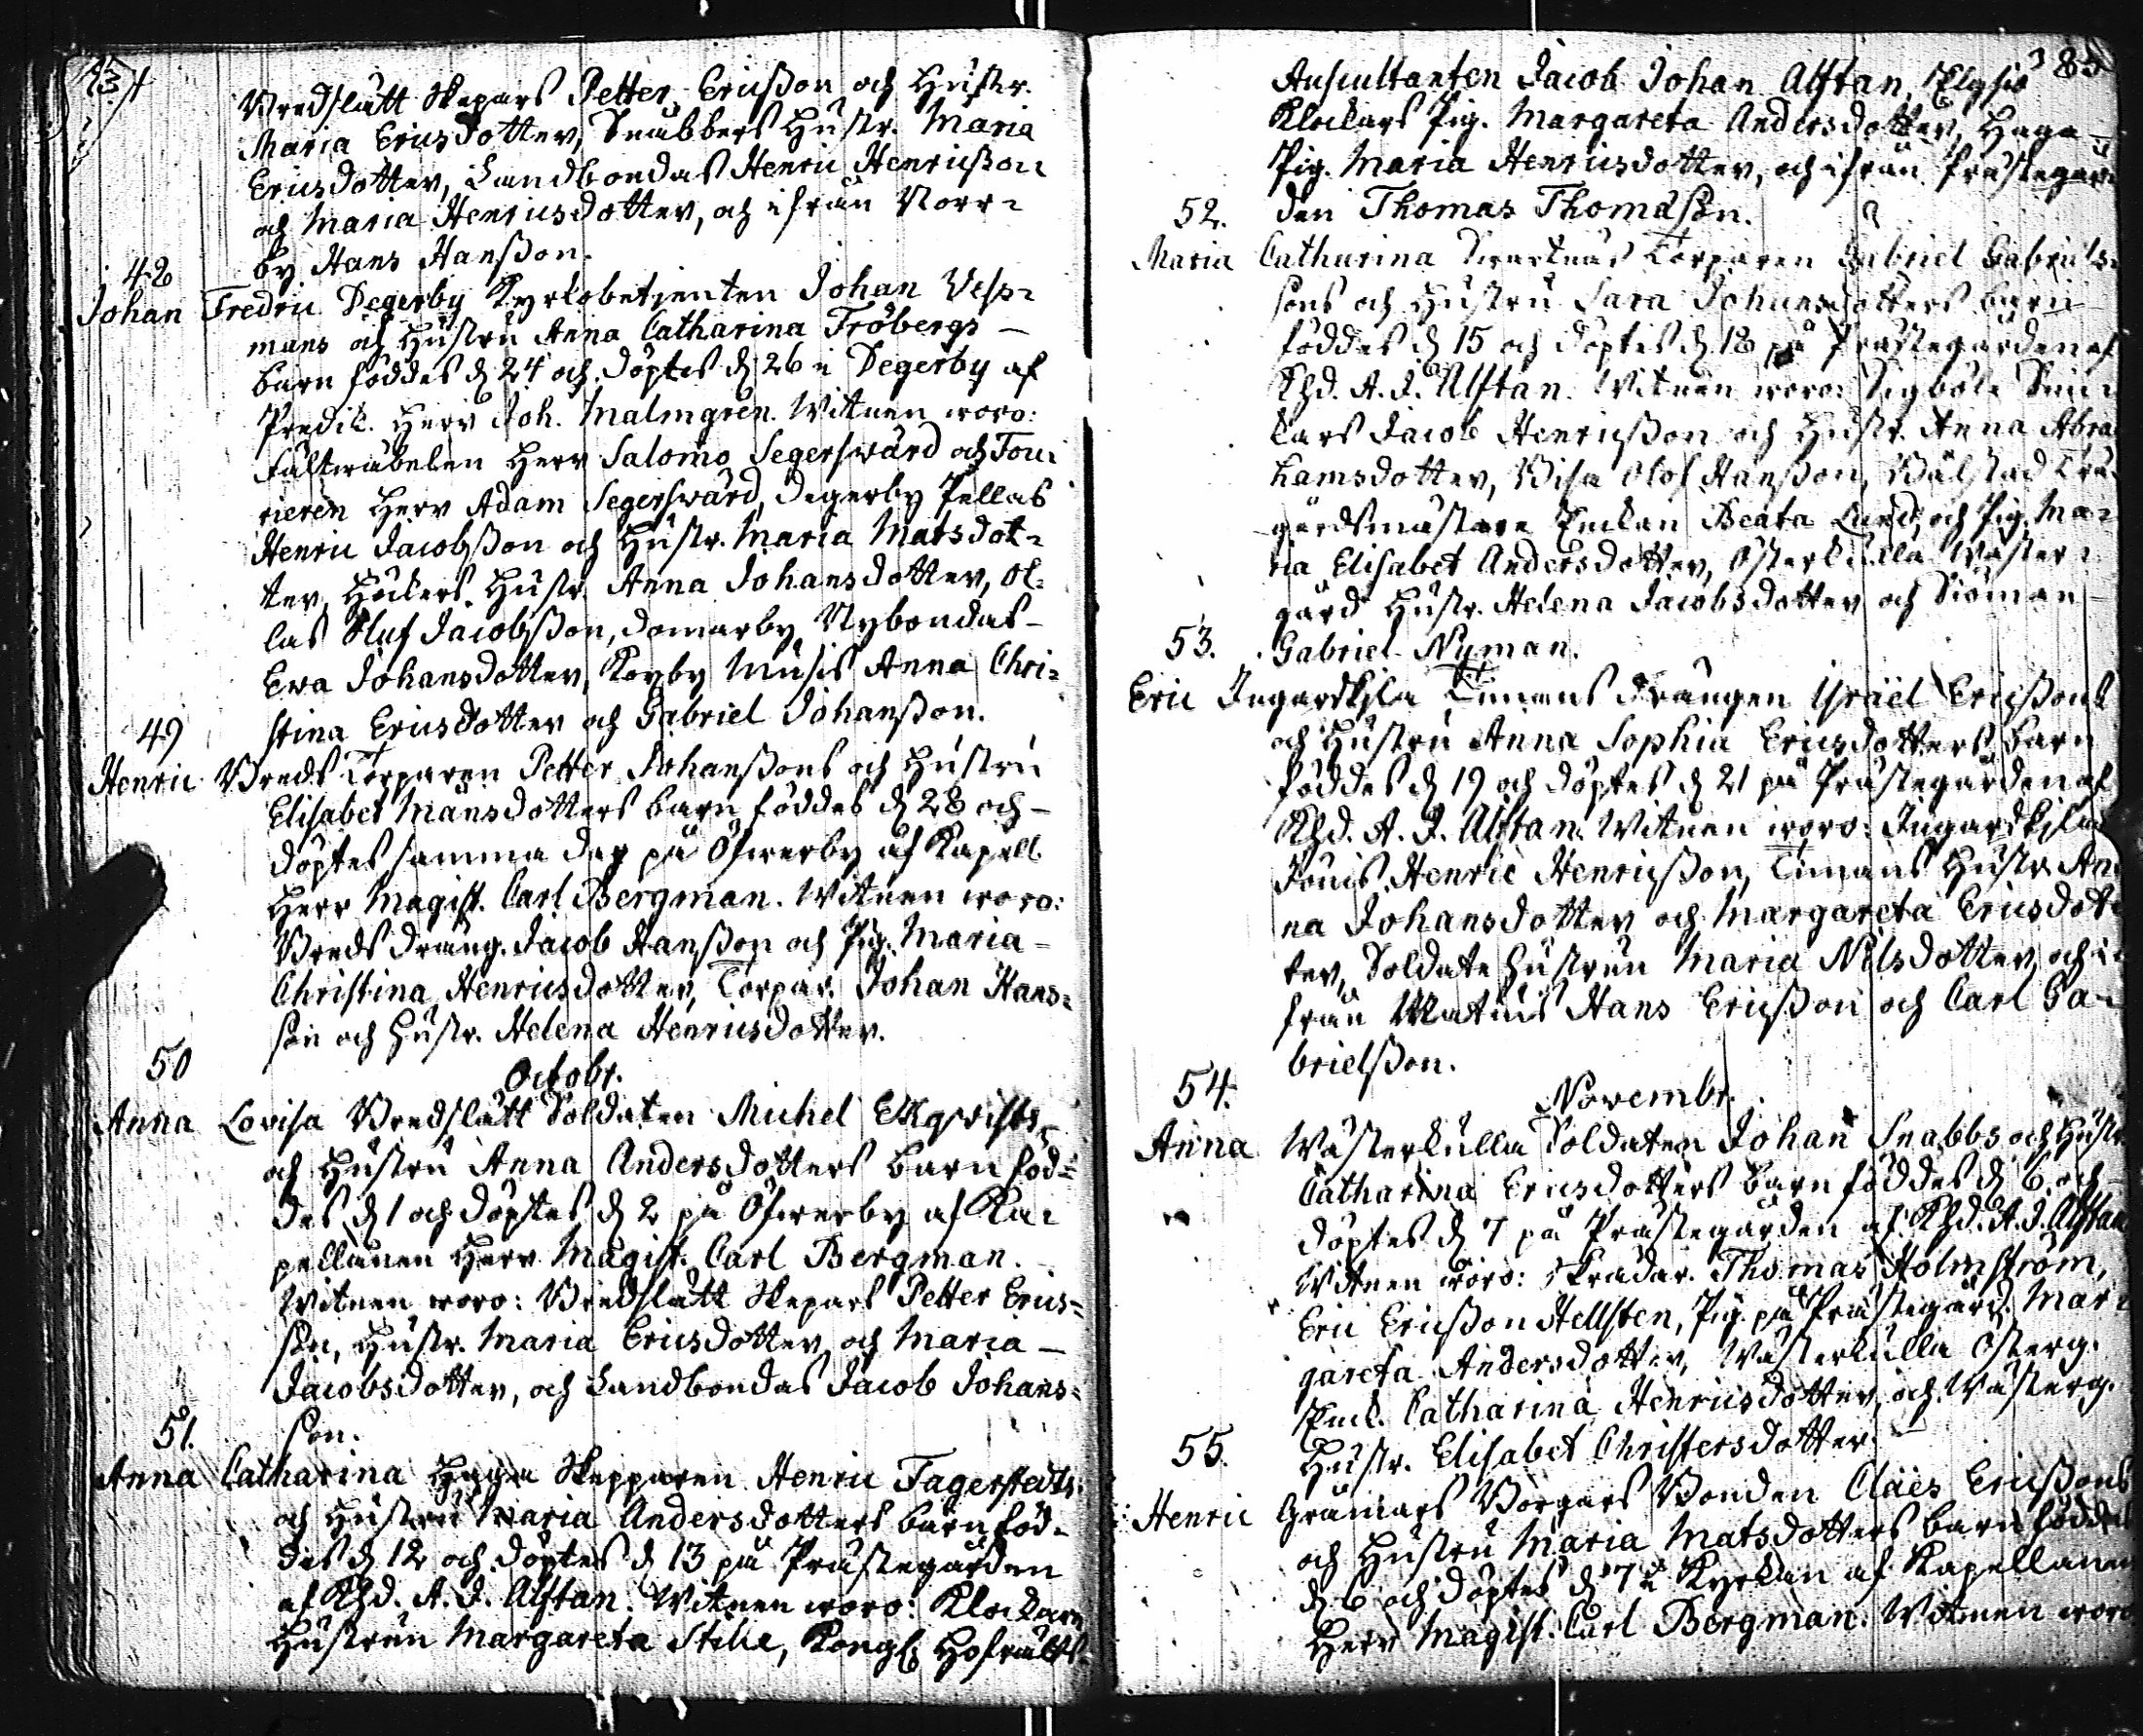 Bredslätt Skepars Petter Ericßon och Hustr.
Maria Ericsdotter, Snabbers Hustr. Maria
Ericsdotter, Landbondas Henric Henricßon
och Maria Henricsdotter, och ifrån Norr-
by Hans Hanßon.
48
Johan Fredric Degerby Kyrkobetjenten Johan Vesp-
mans och Hustru Anna Catharina Fröbergs -
barn föddes d. 24 och döptes d. 26 i Degerby af
Predik. Herr Joh. Malmgren. Witnen woro:
Fältwäbelen Herr Salomo Segerswärd och Fou-
rieren Herr Adam Segerswärd, Degerby Pellas
Henric Jacobßon och Hustr. Maria Matsdot-
ter, Hustr. Anna Johansdotter, Ol-
las Oluf Jacobßon, Domarby Nybondas -
Ewa Johansdotter, Anna Chri-
stina Ericsdotter och Gabriel Johanßon.
49
Henric Breds Torparen Petter Johanßons och Hustru
Elisabet Månsdotters barn föddes d. 28 och -
döptes samma dag på Öfwerby af Kapell.
Herr Magist. Carl Bergman. Witnen woro:
Breds dräng. Jacob Hanßon och Pig. Maria -
Christina Henricsdotter, Torpar. Johan Hans-
son och Hustr. Helena Henricsdotter.
50
Octobr.
Anna Lovisa Bredslätt Soldaten Michel Ekqvists
och Hustru Anna Andersdotters barn föd-
des d. 1 och döptes d. 2 på Öfwerby af Ka-
pellanen Herr Magist. Carl Bergman.
Witnen woro: Bredslätt Skepars Petter Erics-
son, Hustr. Maria Ericsdotter och Maria -
Jacobsdotter, och Landbondas Jacob Johans-
son.
51.
Anna Catharina Haga Skepparen Henric Fagerstedts
och Hustru Maria Andersdotters barn föd-
des d. 12 och döptes d. 13 på Prästegården
af Khd. A. J. Alftan. Witnen woro: Klockare
Hustrun Margareta Stihe, Kongl. Hofrätts-
85
Auscultanten Jacob Johan Alftan,
Klockars Pig. Margareta Andersdotter, Haga -
Pig. Maria Henricsdotter, och ifrån Prästegår-
den Thomas Thomasson.
52.
Maria Catharina Torparen Gabriel Gabriels-
sons och Hustru Sara Johansdotters barn
föddes d. 15 och döptes d. 18 på Prästegården af
Khd. A. J. Alftan. Witnen woro: Sigböle
Jacob Henricßon och Hustr. Anna Abra-
hamsdotter, Olof Hanßon,
Enkan Beata Lund, och Pig. Ma-
ria Elisabet Andersdotter, Österkulla Wäster-
gård Hustr. Helena Jacobsdotter och Sjöman
53.
Gabriel Nyman.
Eric Ingarskila Timans drängen Israël Ericßons
och Hustru Anna Sophia Ericsdotters barn
föddes d. 19 och döptes d. 21 på Prästegården af
Khd. A. J. Alftan. Witnen woro: Ingarskila
Henric Henricßon, Timans Hustr. An-
na Johansdotter och Margareta Ericsdot-
ter, Soldate hustrun Maria Nilsdotter, och i-
från Hans Ericßon och Carl Ga-
brielßon.
54.
Novembr.
Anna Wästerkulla Soldaten Johan Snabbs och Hustr.
Catharina Ericsdotters barn föddes d. 6 och
döptes d. 7 på Prästegården af Khd. A. J. Alftan
Witnen woro: Skrädar. Thomas Holmström,
Eric Ericßon Hellsten, Pig. på Prästegård. Mar-
gareta Andersdotter, Wästerkulla Österg.
Enk. Catharina Henricsdotter, och Wästerg.
55.
Hustr. Elisabet Christersdotter.
Henric Gränars Borgars Bonden Claës Ericßons
och Hustru Maria Matsdotters barn föddes
d. 6 och döptes d. 7 i Kyrkan af Kapellanen
Herr Magist. Carl Bergman. Witnen woro